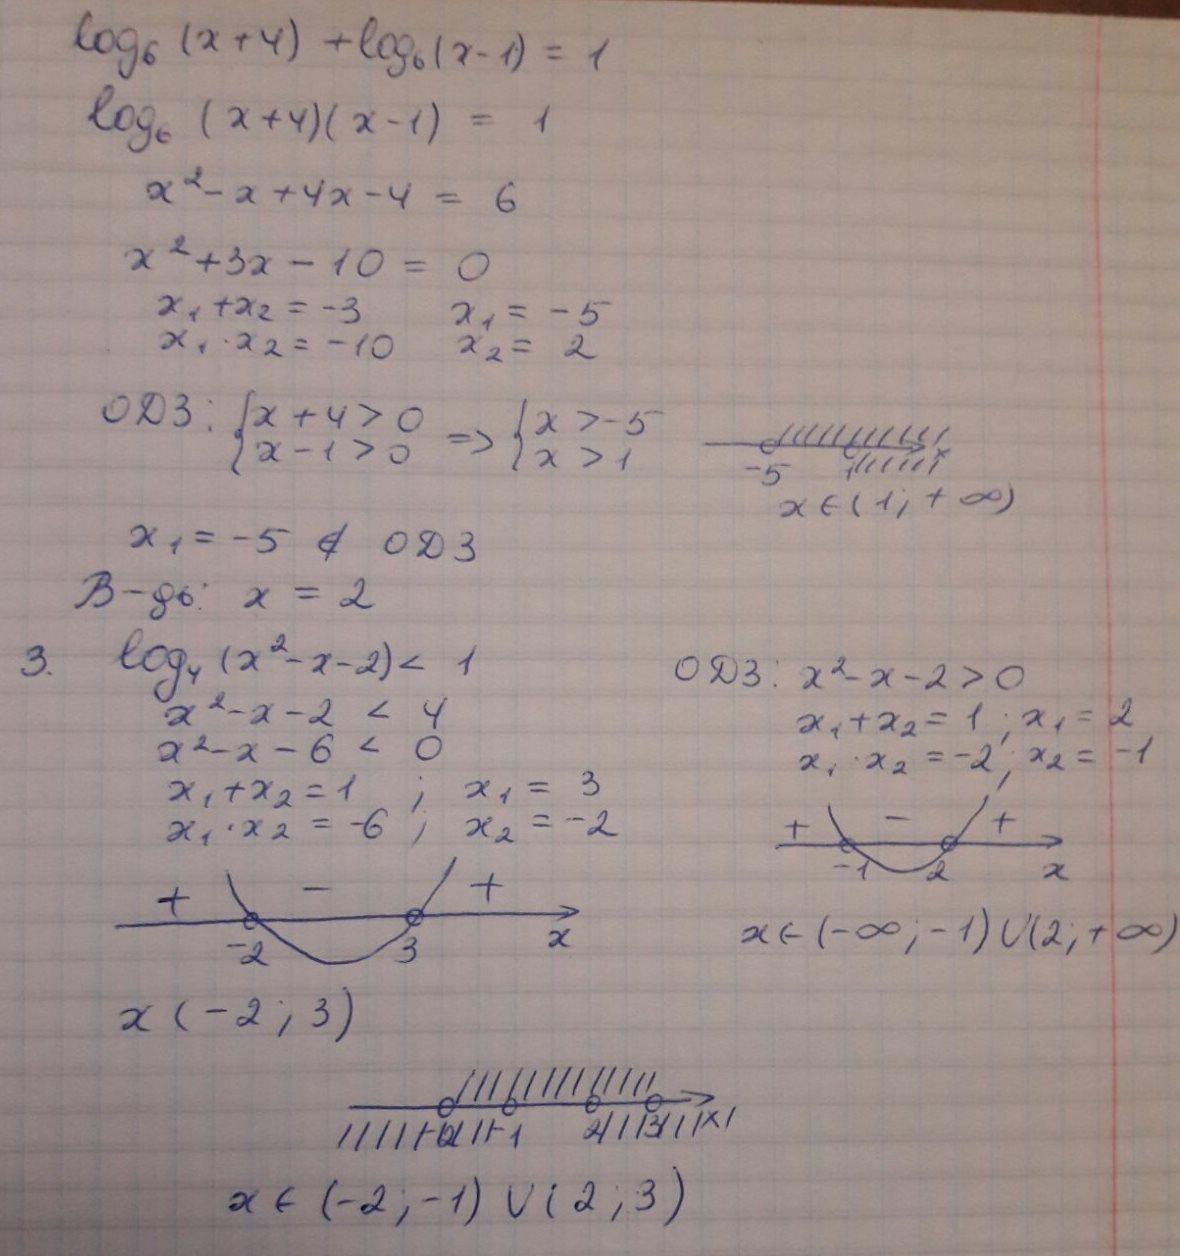 log₆ (x+4) + log₆(x-1) = 1
log₆ (x+4)(x-1) = 1
x² - x + 4x - 4 = 6
x² + 3x - 10 = 0
x₁ + x₂ = -3 x₁ = -5
x₁ · x₂ = -10 x₂ = 2
ОДЗ: { x + 4 > 0 => { x > -5
x - 1 > 0 x > 1
-5 1 x
x ∈ (1; + ∞)
x₁ = -5 ∉ ОДЗ
В-дь: x = 2
3. log₄ (x² - x - 2) < 1
x² - x - 2 < 4
x² - x - 6 < 0
x₁ + x₂ = 1 ; x₁ = 3
x₁ · x₂ = -6 ; x₂ = -2
+ - +
-2 3 x
x (-2 ; 3)
ОДЗ: x² - x - 2 > 0
x₁ + x₂ = 1 ; x₁ = 2
x₁ · x₂ = -2 ; x₂ = -1
+ - +
-1 2 x
x ∈ (-∞ ; -1) ∪ (2 ; + ∞)
-2 -1 2 3 x
x ∈ (-2 ; -1) ∪ (2 ; 3)